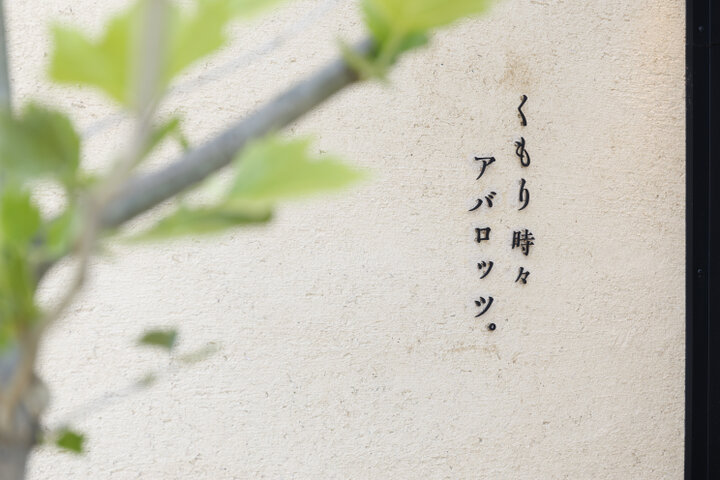 くもり時々
アバロッツ。